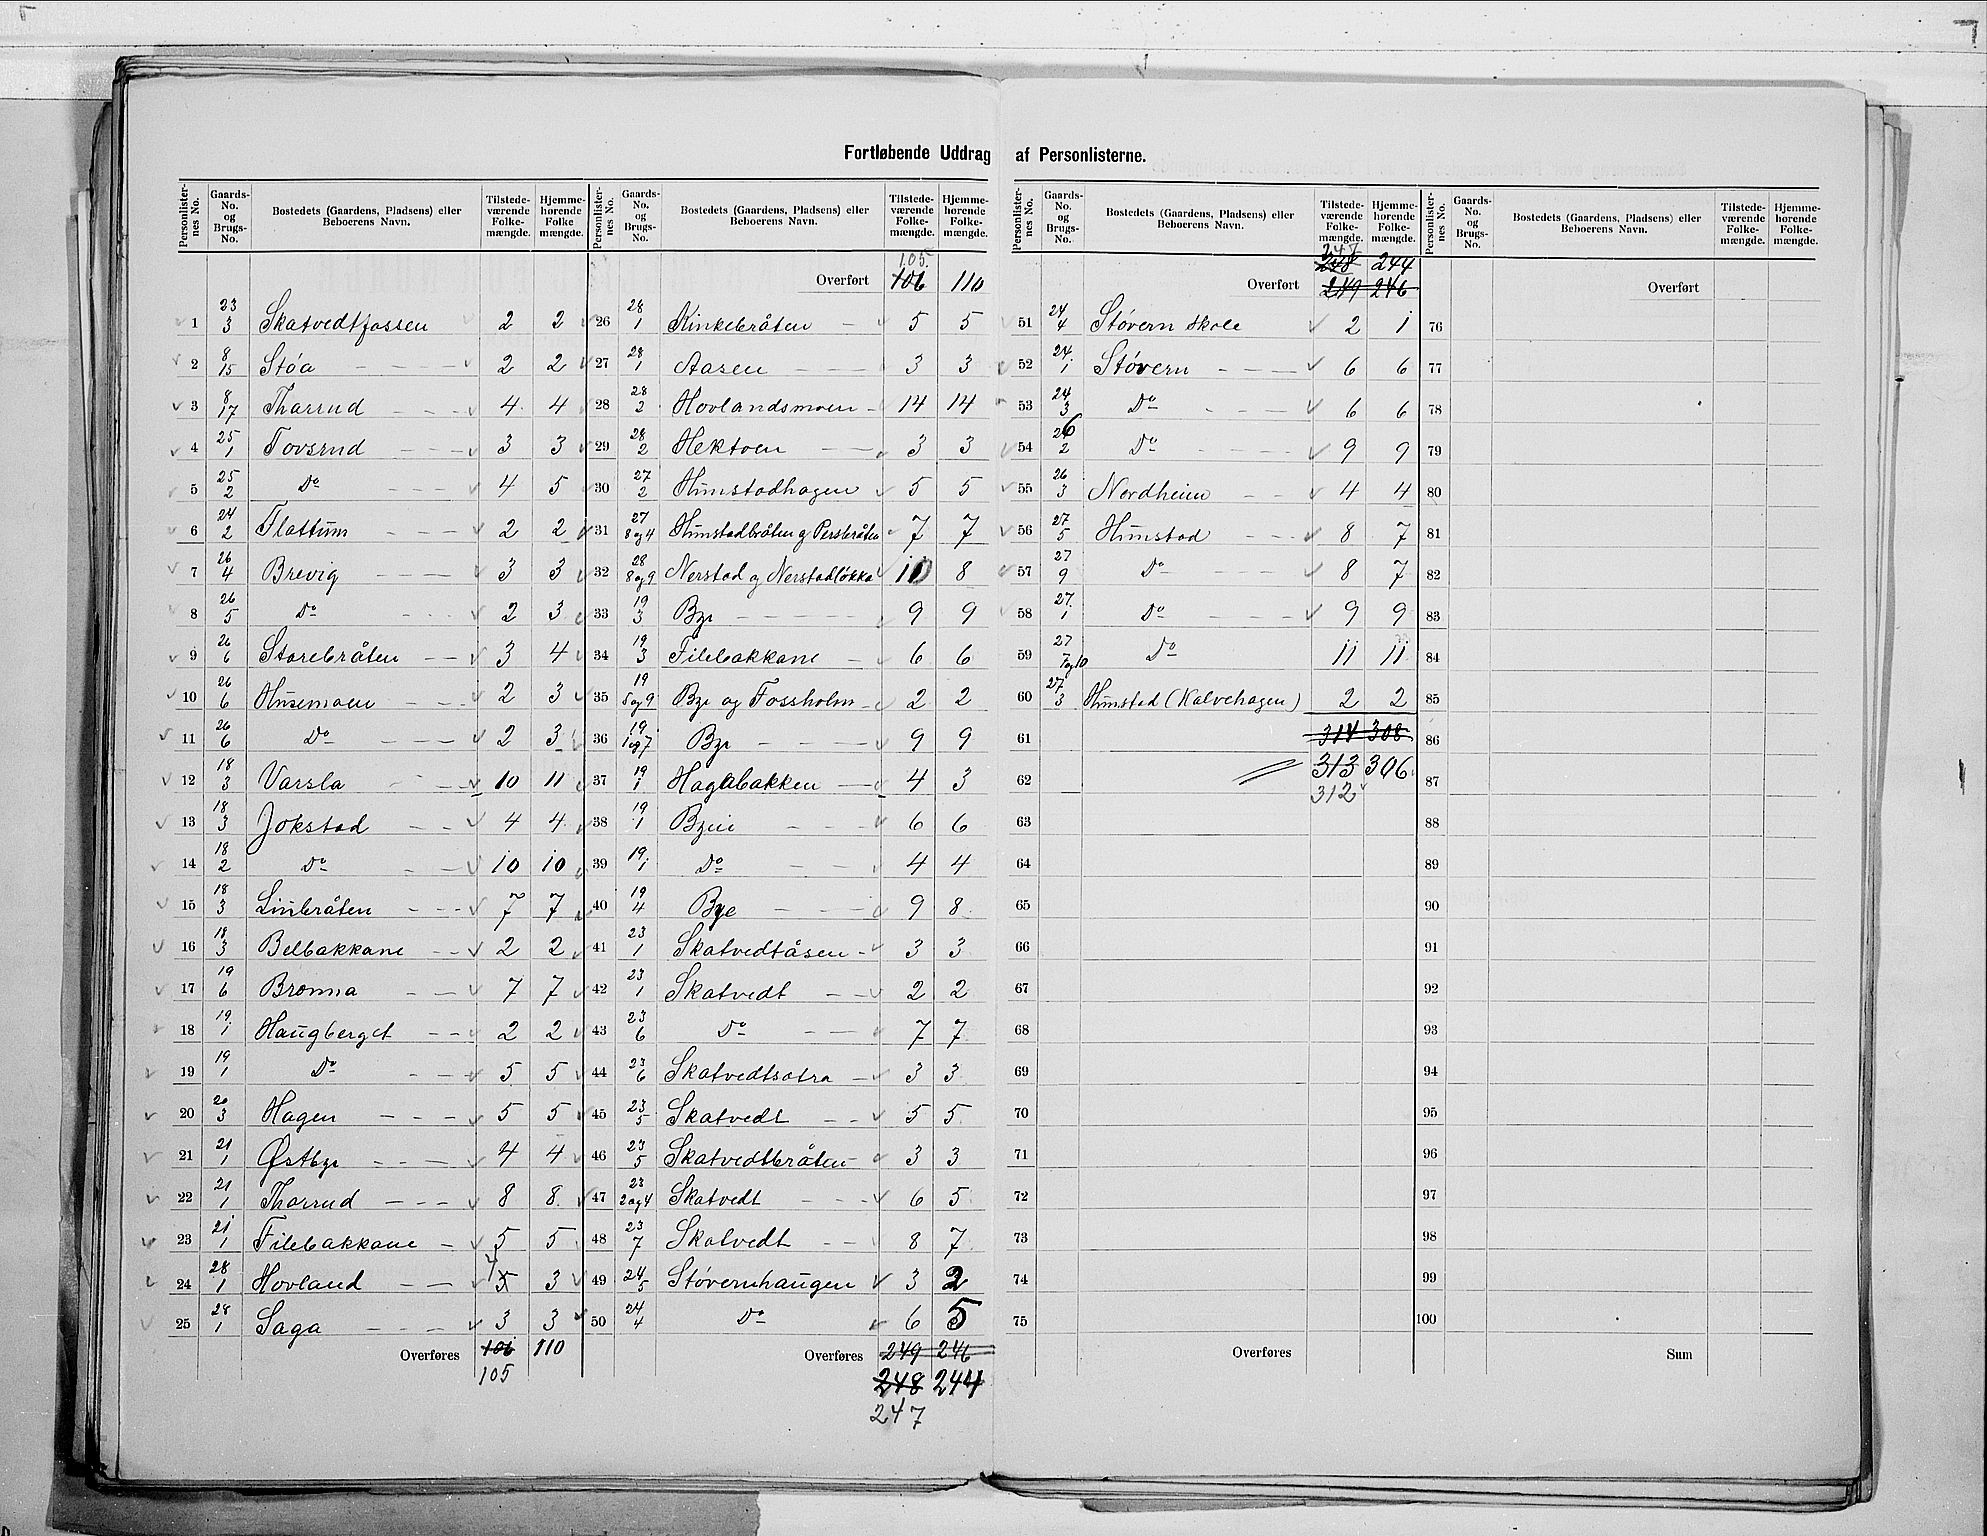 Fortløbende Uddrag af Personlisterne.
Personlister-nes No. | Gaards-No. og Brugs-No. | Bostedets (Gaardens, Pladsens) eller Beboerens Navn. | Tilstede-værende Folke-mængde. | Hjemme-hørende Folke mængde.
1 | 23/3 | Skatvedtfossen | 2 | 2
2 | 8/15 | Støa | 2 | 2
3 | 8/17 | Tharrud | 4 | 4
4 | 25/1 | Tovsrud | 3 | 3
5 | 25/2 | Do | 4 | 5
6 | 24/2 | Flattum | 2 | 2
7 | 26/4 | Brevig | 3 | 3
8 | 26/5 | Do | 2 | 3
9 | 26/6 | Storebråten | 3 | 4
10 | 26/6 | Husemoen | 2 | 3
11 | 26/6 | Do | 2 | 3
12 | 18/3 | Varsla | 10 | 11
13 | 18/3 | Jokstad | 4 | 4
14 | 18/2 | Do | 10 | 10
15 | 18/3 | Linbråten | 7 | 7
16 | 18/3 | Belbakkane | 2 | 2
17 | 19/6 | Bronna | 7 | 7
18 | 19/1 | Haugberget | 2 | 2
19 | 19/1 | Do | 5 | 5
20 | 20/3 | Hagen | 5 | 5
21 | 21/1 | Østbye | 4 | 4
22 | 21/1 | Tharrud | 8 | 8
23 | 21/1 | Filebakkane | 5 | 5
24 | 28/1 | Hovland | 5 | 3
25 | 28/1 | Saga | 3 | 3
Overføres | 106 | 110
105
Personlister-nes No. | Gaards-No. og Brugs-No. | Bostedets (Gaardens, Pladsens) eller Beboerens Navn. | Tilstede-værende Folke-mængde. | Hjemme-hørende Folke-mængde.
105.
Overført | 106 | 110
26 | 28/1 | Kinkebråten | 5 | 5
27 | 28/1 | Aasen | 3 | 3
28 | 28/2 | Hovlandsmoen | 14 | 14
29 | 28/2 | Hektoen | 3 | 3
30 | 27/2 | Himstadhagen | 5 | 5
31 | 27/8 og 4 | Himstadbråten og Persbråten | 7 | 7
32 | 28/8 og 9 | Nerstad og Nerstadløkka | 10 | 8
33 | 19/3 | Bye | 9 | 9
34 | 19/3 | Filebakkane | 6 | 6
35 | 19/5 og 9 | Bye og Fossholm | 2 | 2
36 | 19/1 og 7 | Bye | 9 | 9
37 | 19/1 | Hagabakken | 4 | 3
38 | 19/1 | Byeie | 6 | 6
39 | 19/1 | Do | 4 | 4
40 | 19/4 | Bye | 9 | 8
41 | 23/1 | Skatvedtåsen | 3 | 3
42 | 23/1 | Skatvedt | 2 | 2
43 | 23/6 | Do | 7 | 7
44 | 23/6 | Skatvedtsatra | 3 | 3
45 | 23/5 | Skatvedt | 5 | 5
46 | 23/5 | Skatvedtbråten | 3 | 3
47 | 23/2 og 4 | Skatvedt | 6 | 5
48 | 23/7 | Skatvedt | 8 | 7
49 | 24/5 | Støvernhaugen | 3 | 2
50 | 24/4 | Do | 6 | 5
Overføres | 249 | 246
248 | 244
247
Personlister-nes No. | Gaards-No. og Brugs-No. | Bostedets (Gaardens, Pladsens) eller Beboerens Navn. | Tilstede-værende Folke-mængde. | Hjemme-hørende Folke-mængde.
247
248 | 244
Overført | 249 | 246
51 | 24/4 | Støvern skole | 2 | 1
52 | 24/1 | Støvern | 6 | 6
53 | 24/3 | Do | 6 | 6
54 | 26/2 | Do | 9 | 9
55 | 26/3 | Nordheim | 4 | 4
56 | 27/5 | Himstad | 8 | 7
57 | 27/9 | Do | 8 | 7
58 | 27/1 | Do | 9 | 9
59 | 27/7 og 10 | Do | 11 | 11
60 | 27/3 | Himstad (Kalvehagen) | 2 | 2
61 | 314 | 308
62 | 313 | 306
312
63
64
65
66
67
68
69
70
71
72
73
74
75
Overføres
Personlister-nes No. | Gaards-No. og Brugs-No. | Bostedets (Gaardens, Pladsens) eller Beboerens Navn. | Tilstede-værende Folke-mængde. | Hjemme-hørende Folke-mængde.
Overført
76
77
78
79
80
81
82
83
84
85
86
87
88
89
90
91
92
93
94
95
96
97
98
99
100
Sum